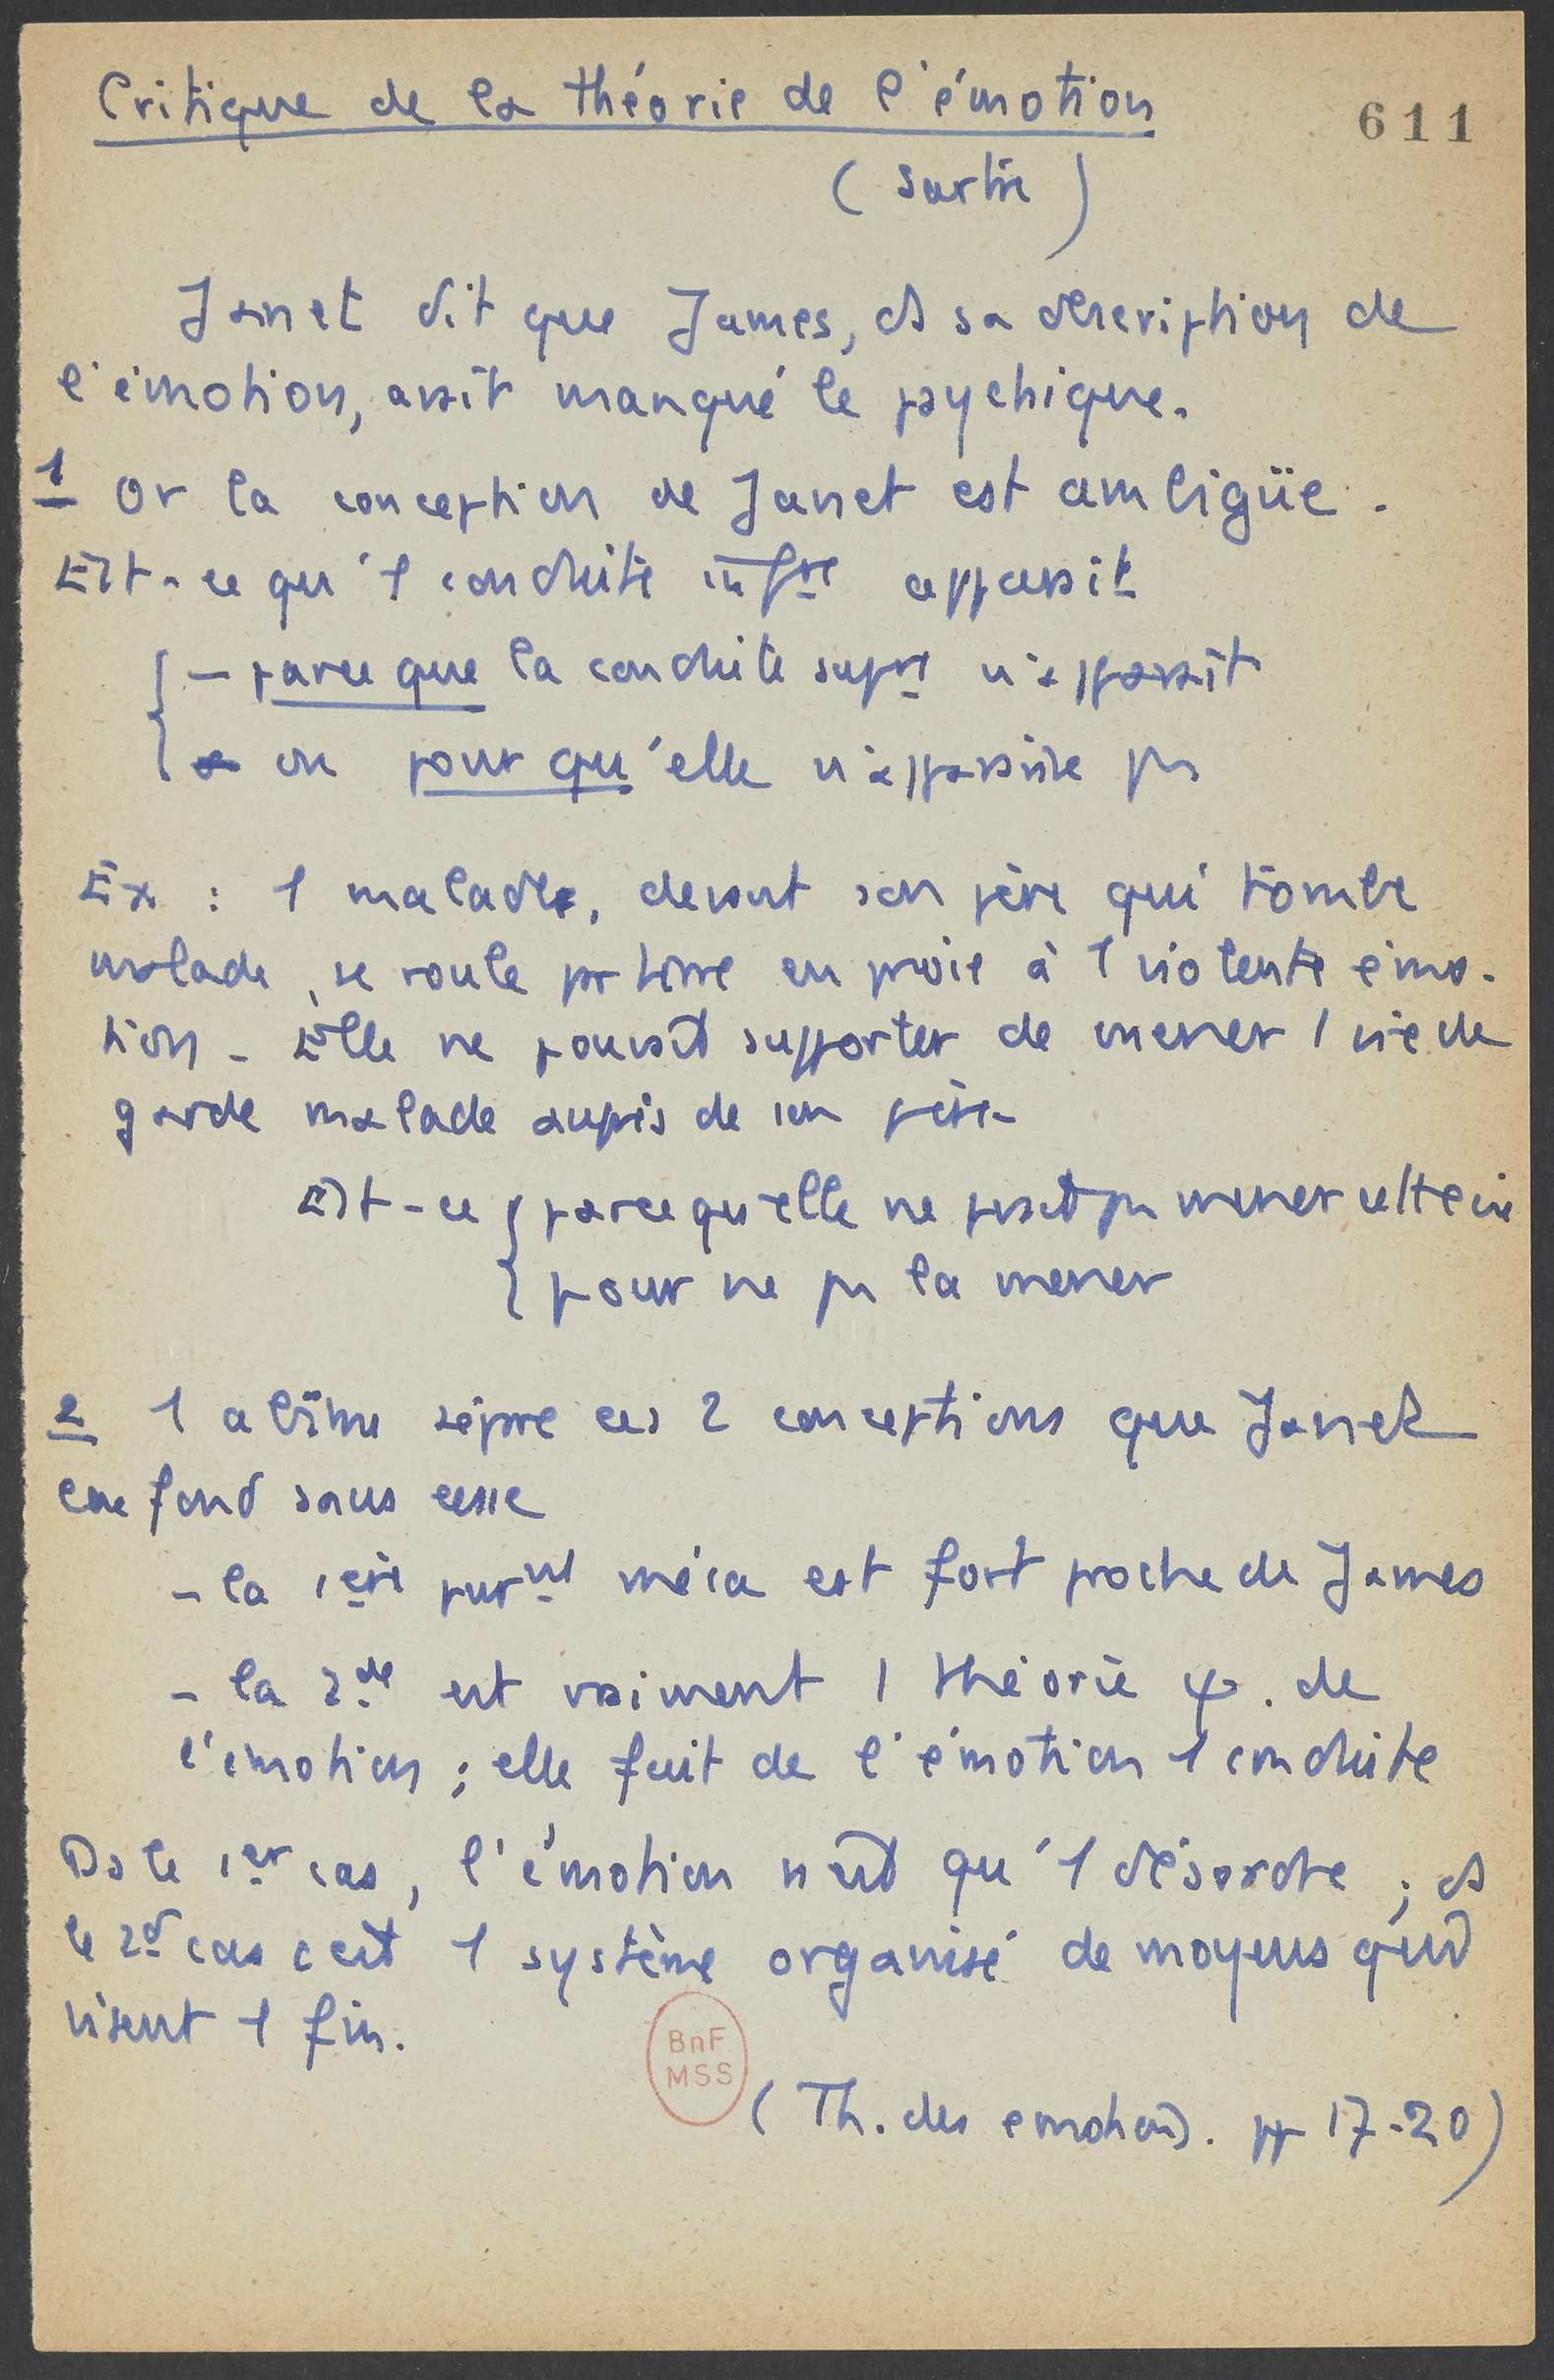 Critique de la théorie de l'émotion
611
(Sartre)
Janet dit que James, ds sa description de
l'émotion, avait manqué le psychique.
1 Or la conception de Janet est ambigüe.
Est-ce qu'1 conduite infre apparait
- parce que la conduite supre n'apparait
ou pour qu'elle n'apparaisse pas
Ex : 1 malade, devant son père qui tombe
malade, se roule par terre en proie à 1 violente émo-
tion - Elle ne pouvait supporter de mener 1 vie de
garde malade auprès de son père.
Est-ce parce qu'elle ne peut pas mener cette vie
pour ne pas la mener
2 1 abîme sépare ces 2 conceptions que Janet
confond sans cesse
- la 1ère purnt méca est fort proche de James
- la 2de est vraiment 1 théorie ψ. de
l'émotion ; elle fait de l'émotion 1 conduite
Ds le 1er cas, l'émotion n'est qu'1 désordre ; ds
le 2d cas c'est 1 système organisé de moyens qui
visent 1 fin.
BnF
MSS
(Th. des emotions. pp 17-20)